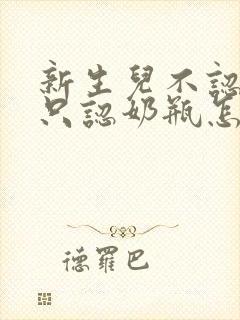 新生兒不認
只認奶瓶怎
德羅巴